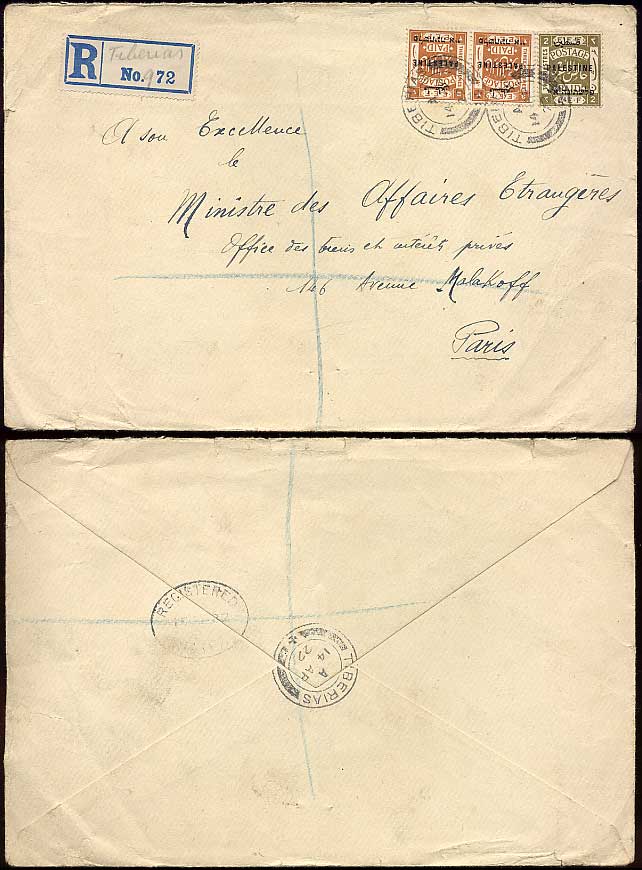 R
Tiberias
No. 972
PALESTINE PALESTINE PALESTINE
PAID PAID POSTAGE
2 2
TIBERIAS 14
TIBERIAS 14
A son Excellence
le
Ministre des Affaires Etrangères
Office des biens et intérêts privés
146 Avenue Malakoff
Paris
REGISTERED
TIBERIAS
A
14 AP
22